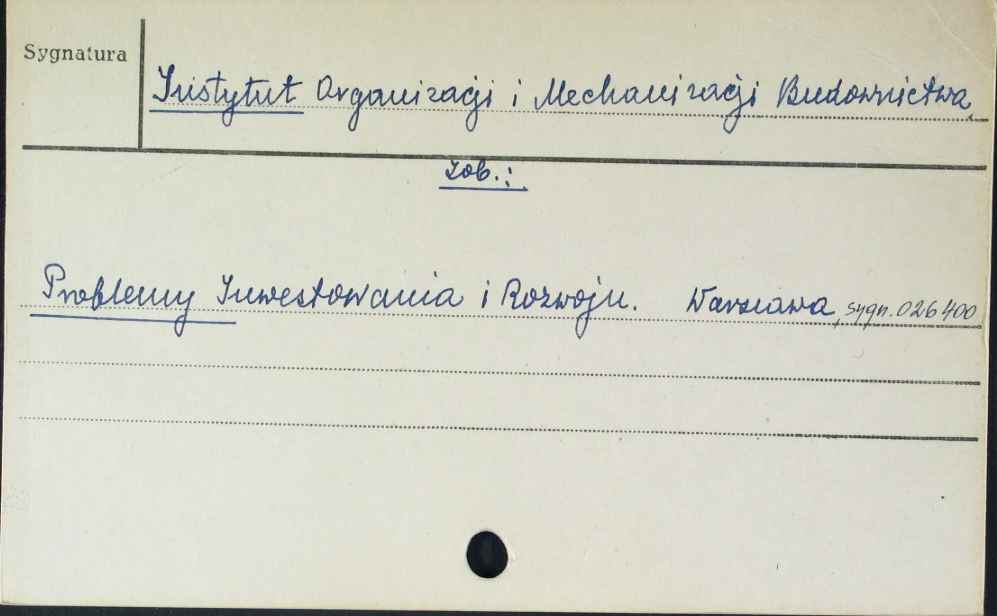 Sygnatura
Instytut Organizacji i Mechanizacji Budownictwa,
zob.:
Problemy Inwestowania i Rozwoju. Warszawa, sygn. 026400